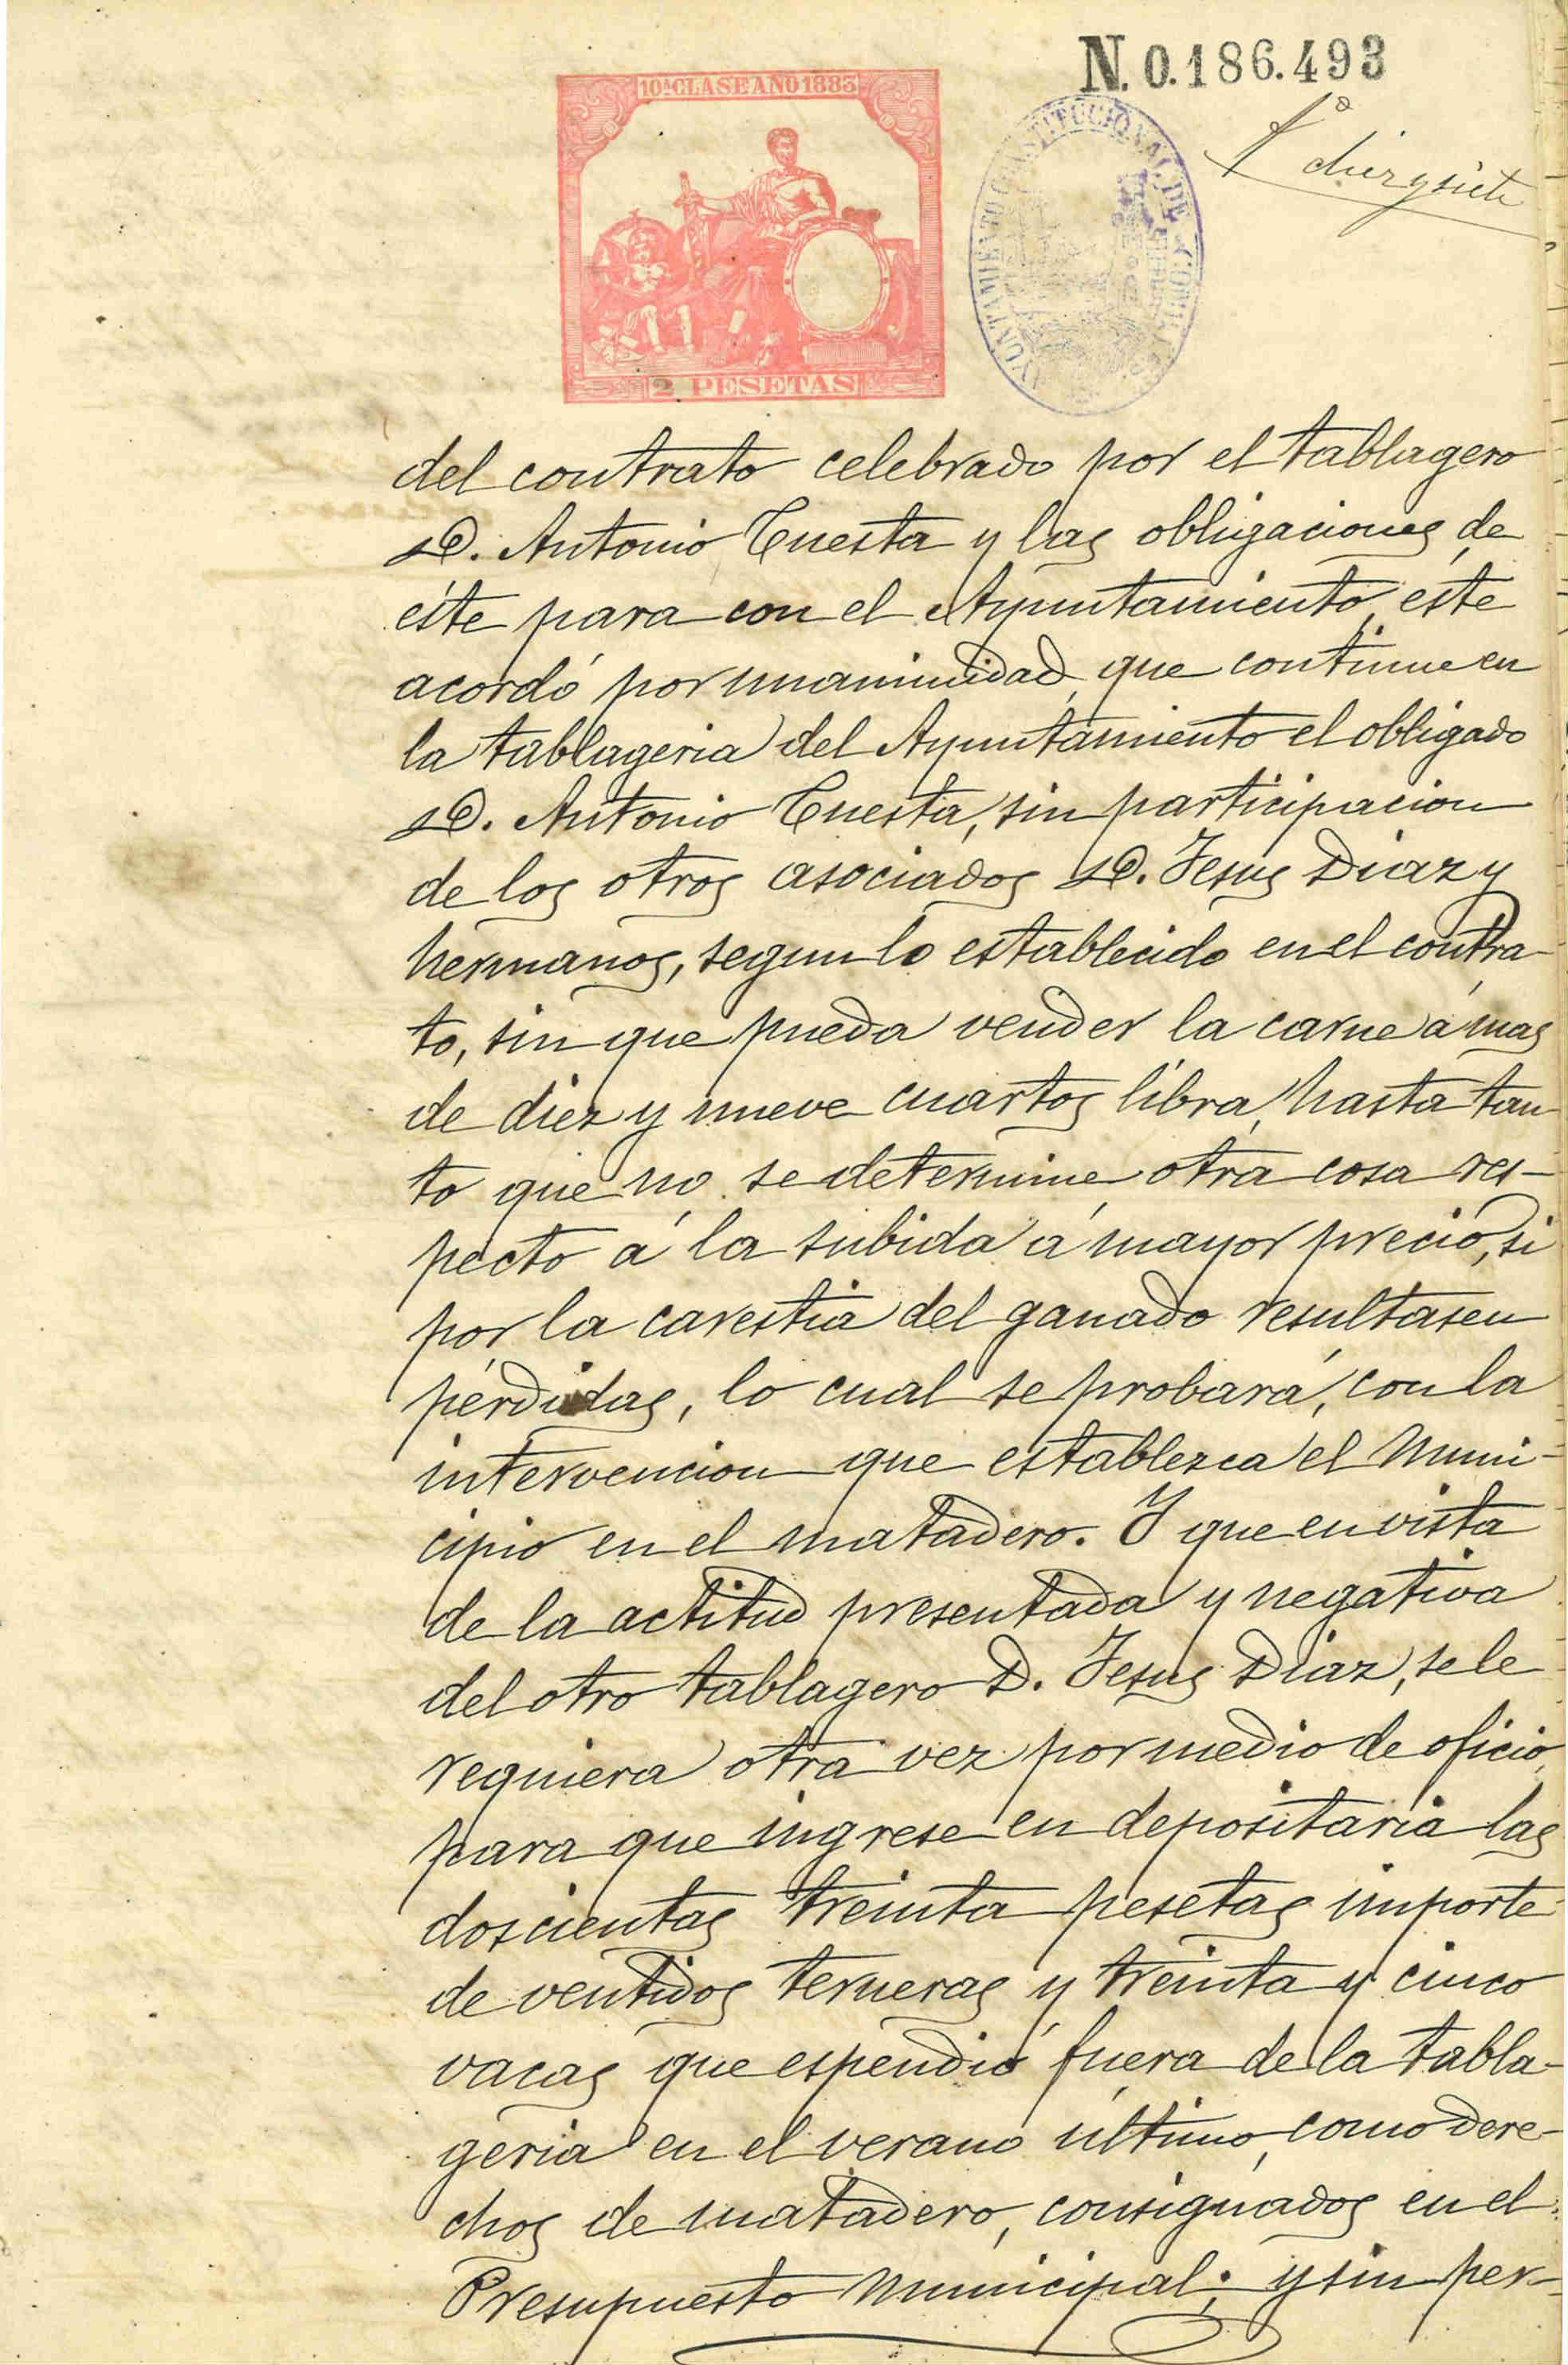 N. 0.186.493
10ª CLASE AÑO 1883
AYUNTAMIENTO CONSTITUCIONAL DE
diez y siete
2 PESETAS
del contrato celebrado por el tablagero
D. Antonio Cuesta y las obligaciones de
éste para con el Ayuntamiento, éste
acordó por unanimidad, que continue en
la tablageria del Ayuntamiento el obligado
D. Antonio Cuesta, sin participacion
de los otros asociados D. Jesus Diaz y
hermanos, segun lo establecido en el contra-
to, sin que pueda vender la carne á mas
de diez y nueve cuartos libra, hasta tan-
to que no se determine otra cosa res-
pecto á la subida á mayor precio, si
por la carestia del ganado resultasen
pérdidas, lo cual se probará, con la
intervencion que establezca el Muni-
cipio en el matadero. Y que en vista
de la actitud presentada y negativa
del otro tablagero D. Jesus Diaz, se le
requiera otra vez por medio de oficio,
para que ingrese en depositaria las
doscientas treinta pesetas importe
de ventidos terneras y treinta y cinco
vacas que espendió fuera de la tabla-
geria en el verano último, como dere-
chos de matadero, consignados en el
Presupuesto Municipal; y sin per-